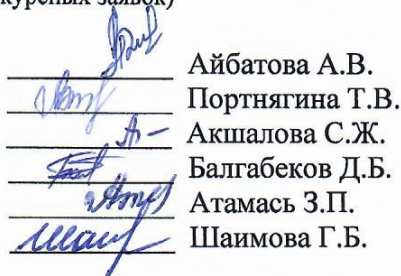 курсных заявок)
Айбатова А.В.
Портнягина Т.В.
Акшалова С.Ж.
Балгабеков Д.Б.
Атамась З.П.
Шаимова Г.Б.